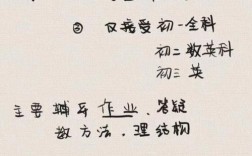 ② 仅接受初一全科
初二数英科
初三英
主要辅导作业、答疑
教方法、理结构